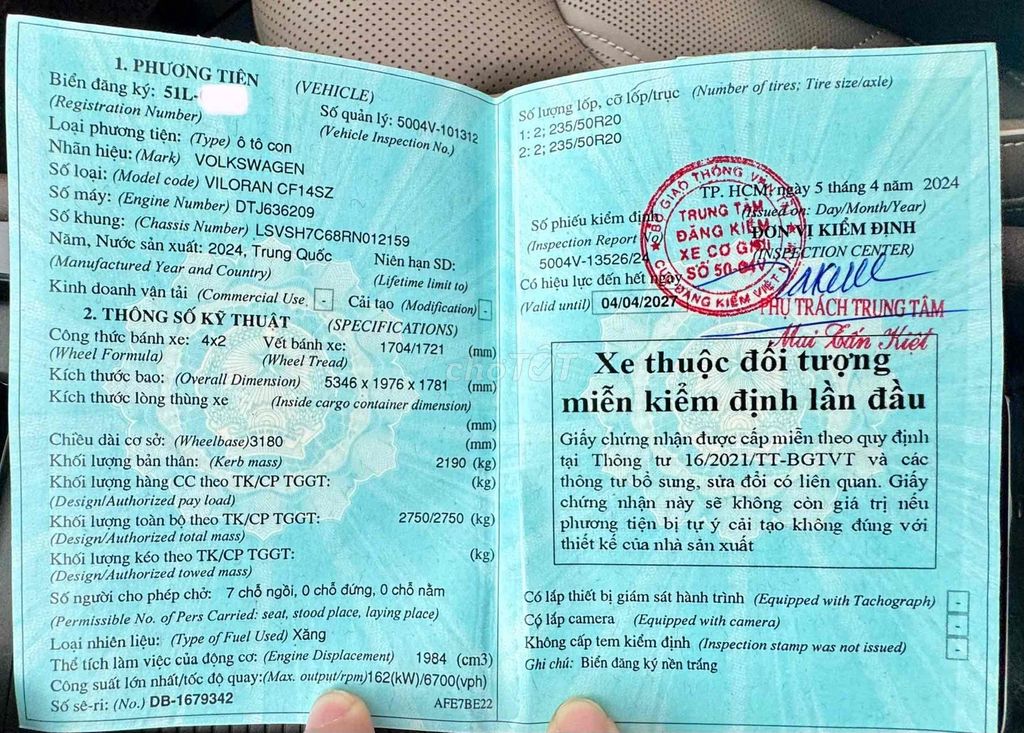 1. PHƯƠNG TIỆN (VEHICLE)
Biển đăng ký: 51L-
(Registration Number)
Số quản lý: 5004V-101312
(Vehicle Inspection No.)
Loại phương tiện: (Type) ô tô con
Nhãn hiệu: (Mark) VOLKSWAGEN
Số loại: (Model code) VILORAN CF14SZ
Số máy: (Engine Number) DTJ636209
Số khung: (Chassis Number) LSVSH7C68RN012159
Năm, Nước sản xuất: 2024, Trung Quốc
(Manufactured Year and Country)
Niên hạn SD:
(Lifetime limit to)
Kinh doanh vận tải (Commercial Use) - Cải tạo (Modification) -
2. THÔNG SỐ KỸ THUẬT (SPECIFICATIONS)
Công thức bánh xe: 4x2 Vết bánh xe: 1704/1721 (mm)
(Wheel Formula) (Wheel Tread)
Kích thước bao: (Overall Dimension) 5346 x 1976 x 1781 (mm)
Kích thước lòng thùng xe (Inside cargo container dimension)
(mm)
Chiều dài cơ sở: (Wheelbase) 3180 (mm)
Khối lượng bản thân: (Kerb mass) 2190 (kg)
Khối lượng hàng CC theo TK/CP TGGT: (kg)
(Design/Authorized pay load)
Khối lượng toàn bộ theo TK/CP TGGT: 2750/2750 (kg)
(Design/Authorized total mass)
Khối lượng kéo theo TK/CP TGGT: (kg)
(Design/Authorized towed mass)
Số người cho phép chở: 7 chỗ ngồi, 0 chỗ đứng, 0 chỗ nằm
(Permissible No. of Pers Carried: seat, stood place, laying place)
Loại nhiên liệu: (Type of Fuel Used) Xăng
Thể tích làm việc của động cơ: (Engine Displacement) 1984 (cm3)
Công suất lớn nhất/tốc độ quay: (Max. output/rpm) 162(kW)/6700(vph)
Số sê-ri: (No.) DB-1679342 AFE7BE22
Số lượng lốp, cỡ lốp/trục (Number of tires; Tire size/axle)
1: 2; 235/50R20
2: 2; 235/50R20
TP. HCM, ngày 5 tháng 4 năm 2024
(Issued on: Day/Month/Year)
Số phiếu kiểm định
(Inspection Report
5004V-13526/24
ĐƠN VỊ KIỂM ĐỊNH
(INSPECTION CENTER)
BỘ GIAO THÔNG VẬN TẢI
TRUNG TÂM
ĐĂNG KIỂM
XE CƠ GIỚI
SỐ 50-04V
CỤC ĐĂNG KIỂM VIỆT NAM
Có hiệu lực đến hết ngày
(Valid until) 04/04/2027
PHỤ TRÁCH TRUNG TÂM
Mai Tấn Kiệt
chợTỐT
Xe thuộc đối tượng
miễn kiểm định lần đầu
Giấy chứng nhận được cấp miễn theo quy định
tại Thông tư 16/2021/TT-BGTVT và các
thông tư bổ sung, sửa đổi có liên quan. Giấy
chứng nhận này sẽ không còn giá trị nếu
phương tiện bị tự ý cải tạo không đúng với
thiết kế của nhà sản xuất
Có lắp thiết bị giám sát hành trình (Equipped with Tachograph) -
Có lắp camera (Equipped with camera) -
Không cấp tem kiểm định (Inspection stamp was not issued) -
Ghi chú: Biển đăng ký nền trắng